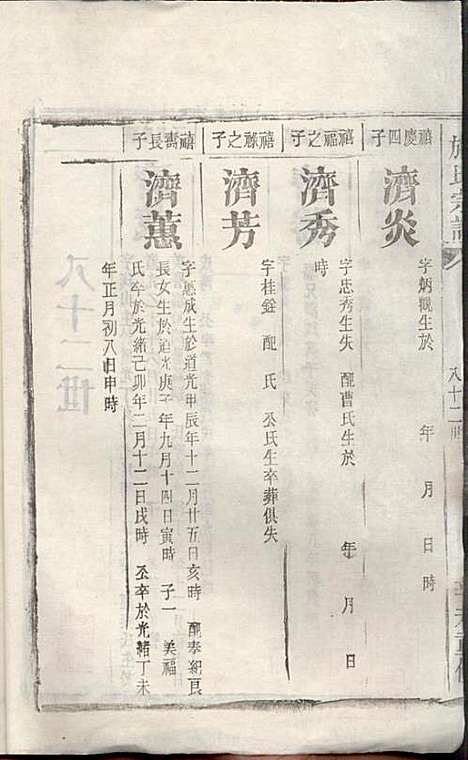 氏宗譜
八十二世
禧慶四子
濟炎
字炳觀生於 年 月 日 時
禧福之子
濟秀
字忠秀生失 配曹氏生於 年 月 日
時
禧祿之子
濟芳
字桂銓 配 氏 公氏生卒葬俱失
禧壽長子
濟蕙
字惠成生於道光甲辰年十二月廿五日亥時 配李紹良
長女生於道光庚子年九月十四日寅時 子一 美福
氏卒於光緒己卯年二月十二日戌時 公卒於光緒丁未
年正月初八日申時
八十二世